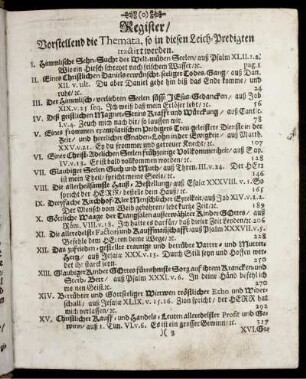 (o)
Register/
Vorstellend die Themata, so in diesen Leich-Predigten
tractirt werden.
I. Himmlische Sehn-Sucht der Welt-müden Seelen/ auß Psalm XLII. 1. 2.
Wie ein Hirsch schreyet nach frischen Wasser/ꝛc. pag. 1
II. Eines Christlichen Daniels erwünscht-seeliger Todes-Gang/ auß Dan.
XII. v. ult. Du aber Daniel gehe hin biß das Ende komm/ und
ruhe/ ꝛc.
III. Der Himmlisch-verliebten Seelen süsse JEsus-Gedancken/ auß Job
XIX. v. 25 seq. Ich weiß daß mein Erlöser lebt/ ꝛc. 56
IV. auß Cantic.
I. v. 4. Zeuch mich nach dir so lauffen wir.
V. Eines frommen exemplarischen Predigers Treu geleisteter Dienst in der
Zeit/ und herrlicher Gnaden-Lohn in der Ewigkeit/ auß Matth.
XXV. v. 21. Ey du frommer und getreuer Knecht/ ꝛc.
VI. Eine Christ-Adeliche Seelen frühzeitige Vollkommenheit/ auß Sap.
IV. v. 13. Er ist bald vollkommen worden/ ꝛc. 128
VII. Glaubiger Seelen Guth und Muth/ auß Thren. III. v. 24. Der HErr
ist mein Theil/ spricht meine Seele/ ꝛc. 146
VIII. Die allerheilsamste Hauß-Bestellung/ auß Esaiæ XXXVIII v. 1. So
spricht der HERR/ bestelle dein Hauß/ ꝛc. 166
IX. auß Job
XIV. v. 1. 2. Der Mensch vom Weib gebohren/ lebt kurtze Zeit/ ꝛc.
X. auß
Röm. VIII. v. 18. Ich halte es darfür/ daß dieser Zeit Leyden/ꝛc. 206
XI. Die allerbeste Factorey und Kauffmannschafft/ auß Psalm XXXVII. v. 5.
Befehle dem HErrn deine Wege/ ꝛc. 229
XII. Des zufrieden-gestellte traurige und betrübte Vatter- und Mutter-
Hertz/ auß Jesaiæ XXX. v. 15. Durch Still seyn und Hoffen wer-
det ihr starck seyn.
XIII. Glaubiger Kinder GOttes fürnehmste Sorg auf ihrem Krancken- und
Sterb-Bett/ auß Psalm XXXI. v. 6. In deine Händ befehl ich
meinen Geist/ ꝛc.
XIV. Betrübter und Gottseeliger Wittwen tröstlicher Echo und Wider-
schall/ auß Jesaiæ XLIX. v. 15. 16. Zion spricht/ der HERR hat
mich verlassen/ ꝛc.
XV. Christlicher Kauff- und Handels-Leuten allerbester Profit und Ge-
winn/ auß 1. Tim. VI. v. 6. Es ist ein grosser Gewinn/ ꝛc.
XVI. Got-